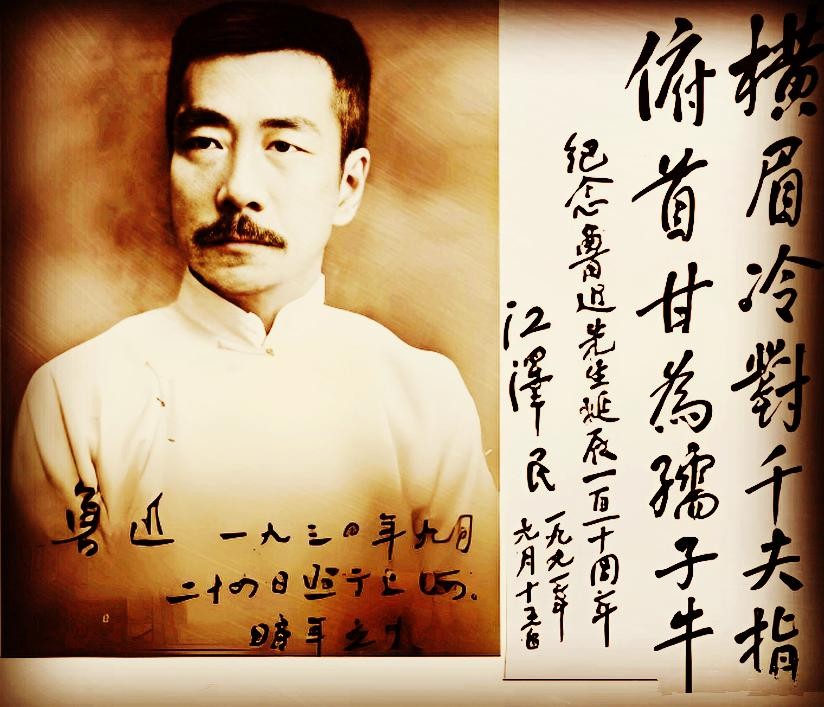 横眉冷對千夫指
俯首甘為孺子牛
纪念魯迅先生誕辰一百一十周年
江澤民
一九九一年
九月十五日
魯迅 一九三〇年九月
二十四日照于上海。
時年五十